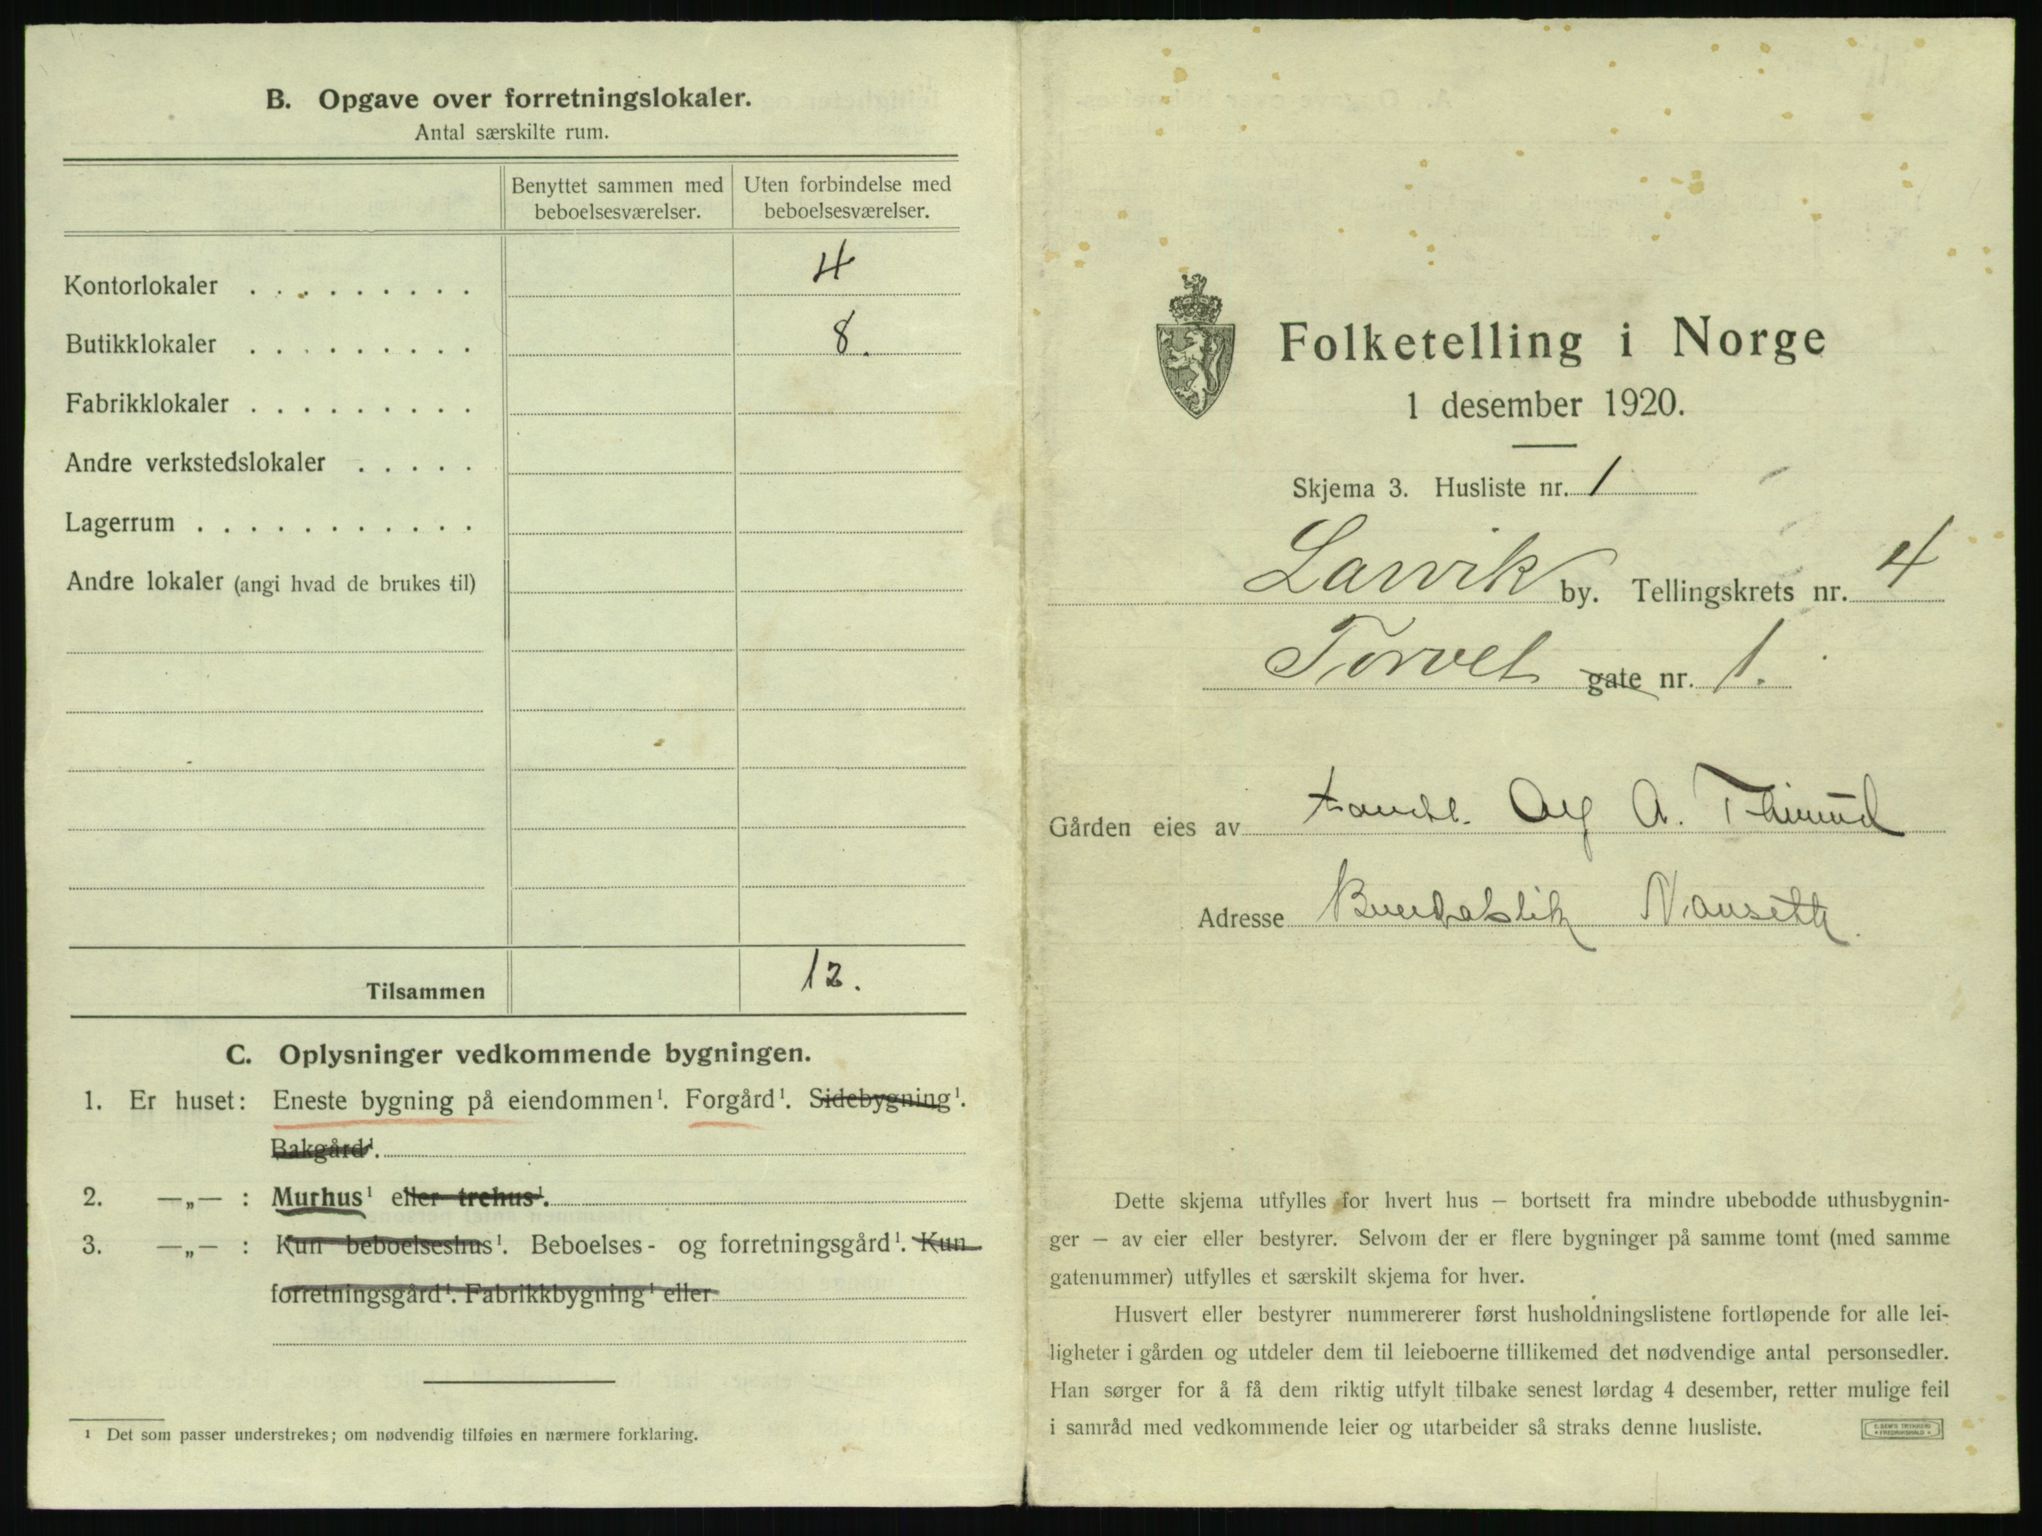 B. Opgave over forretningslokaler.
Antal særskilte rum.
Benyttet sammen med beboelsesværelser.
Uten forbindelse med beboelsesværelser.
Kontorlokaler . . . . . . . . . 4
Butikklokaler . . . . . . . . . 8.
Fabrikklokaler . . . . . . . . .
Andre verkstedslokaler . . . . .
Lagerrum . . . . . . . . . . .
Andre lokaler (angi hvad de brukes til)
Tilsammen 12.
C. Oplysninger vedkommende bygningen.
1. Er huset: Eneste bygning på eiendommen¹. Forgård¹. Sidebygning¹.
Bakgård¹.
2. —„— : Murhus¹ eller trehus¹.
3. —„— : Kun beboelseshus¹. Beboelses- og forretningsgård¹. Kun
forretningsgård¹. Fabrikkbygning¹ eller
¹ Det som passer understrekes; om nødvendig tilføies en nærmere forklaring.
Folketelling i Norge
1 desember 1920.
Skjema 3. Husliste nr. 1
Larvik by. Tellingskrets nr. 4
Torvet gate nr. 1.
Gården eies av Alf A.
Adresse
Dette skjema utfylles for hvert hus – bortsett fra mindre ubebodde uthusbygnin-
ger – av eier eller bestyrer. Selvom der er flere bygninger på samme tomt (med samme
gatenummer) utfylles et særskilt skjema for hver.
Husvert eller bestyrer nummererer først husholdningslistene fortløpende for alle lei-
ligheter i gården og utdeler dem til leieboerne tillikemed det nødvendige antal personsedler.
Han sørger for å få dem riktig utfylt tilbake senest lørdag 4 desember, retter mulige feil
i samråd med vedkommende leier og utarbeider så straks denne husliste.